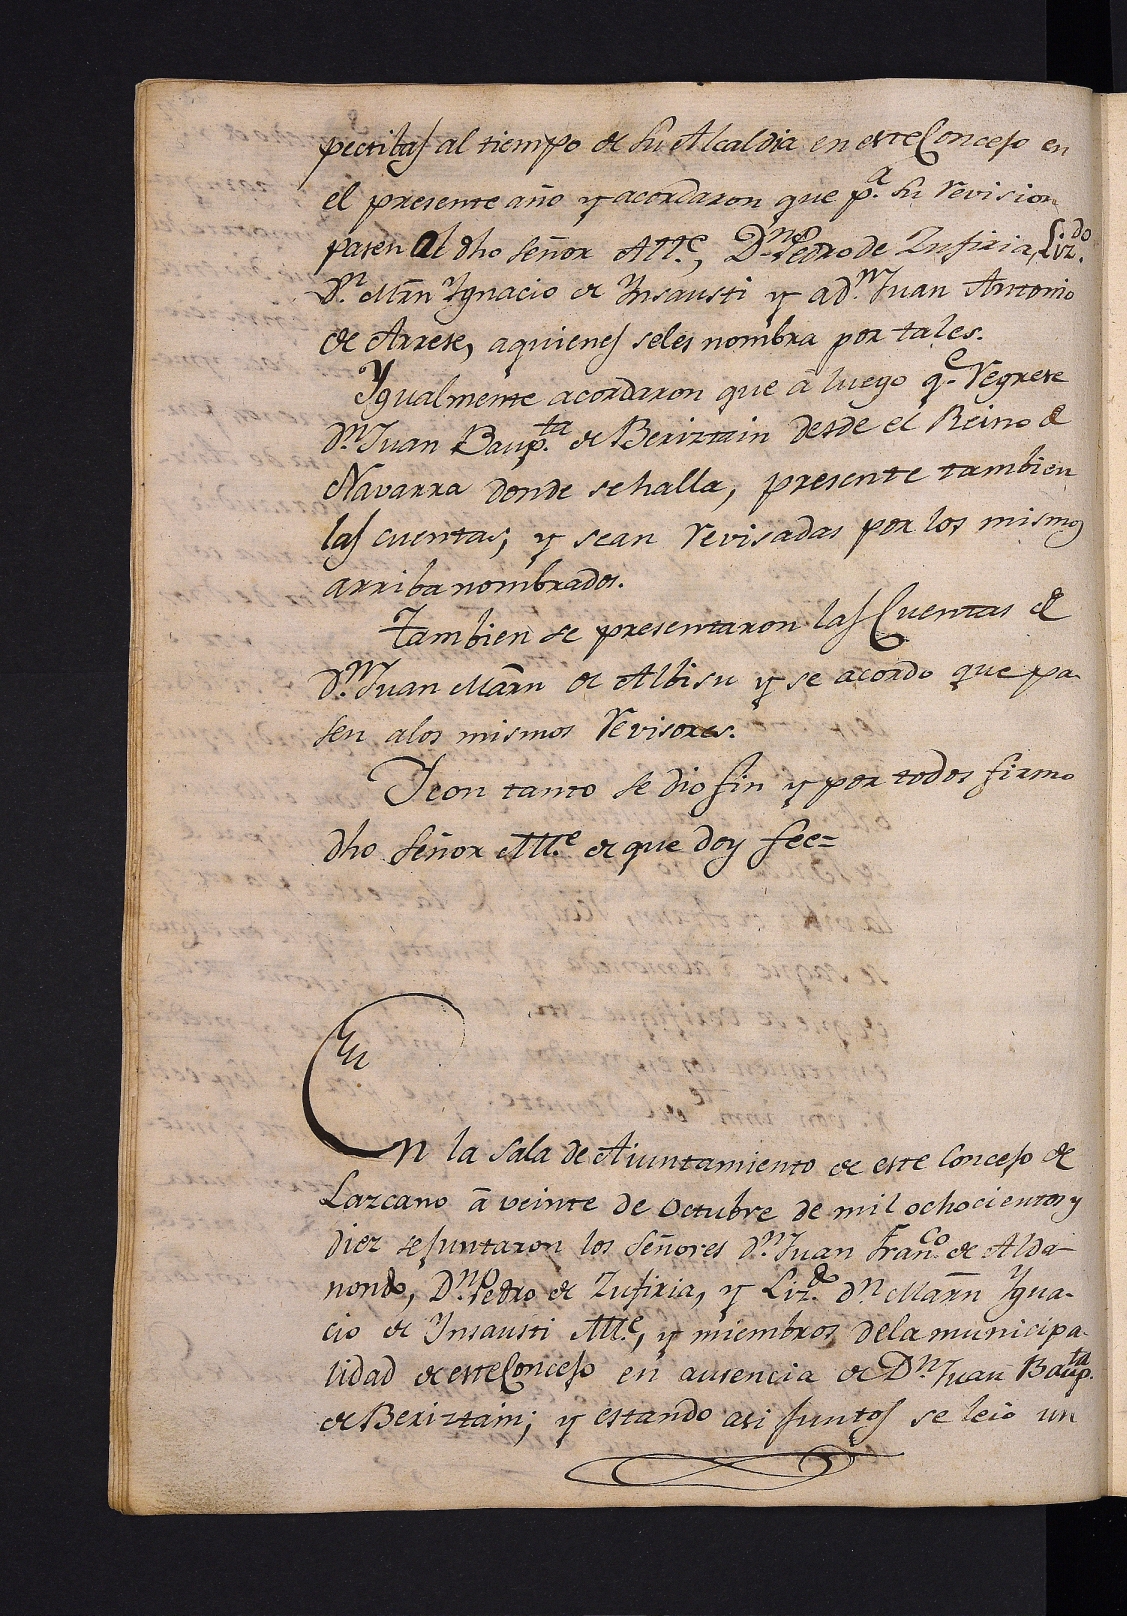 pectibas al tiempo de su Alcaldia en este Concejo en
el presente año y acordaron que p.a su revision
pasen al dho Señor Alle., D.n Pedro de Zufiria, Liz.do
D.n Mrn Ygnacio de Ynsausti y a d.n Juan Antonio
de Arrese, aquienes seles nombra por tales.
Ygualmente acordaron que á luego q.e regrese
d.n Juan Baup.ta de Beriztain desde el Reino de
Navarra donde sehalla, presente tambien
las cuentas, y sean revisadas por los mismos
arriba nombrados.
Tambien se presentaron las Cuentas de
d.n Juan Marn de Albisu y se acordo que pa-
sen alos mismos Revisores.
Y con tanto se dio fin y por todos firmo
dho Señor Alle. de que doy fee=
En la Sala de Aiuntamiento de este Concejo de
Lazcano á veinte de Octubre de mil ochocientos y
diez se juntaron los Señores d.n Juan Fran.co de Alda-
nondo, D.n Pedro de Zufiria, y Liz.do d.n Marn Ygna-
cio de Ynsausti Alle., y miembros dela municipa-
lidad de este Concejo en ausencia de D.n Juan Baup.ta
de Beriztain; y estando asi juntos se leio un